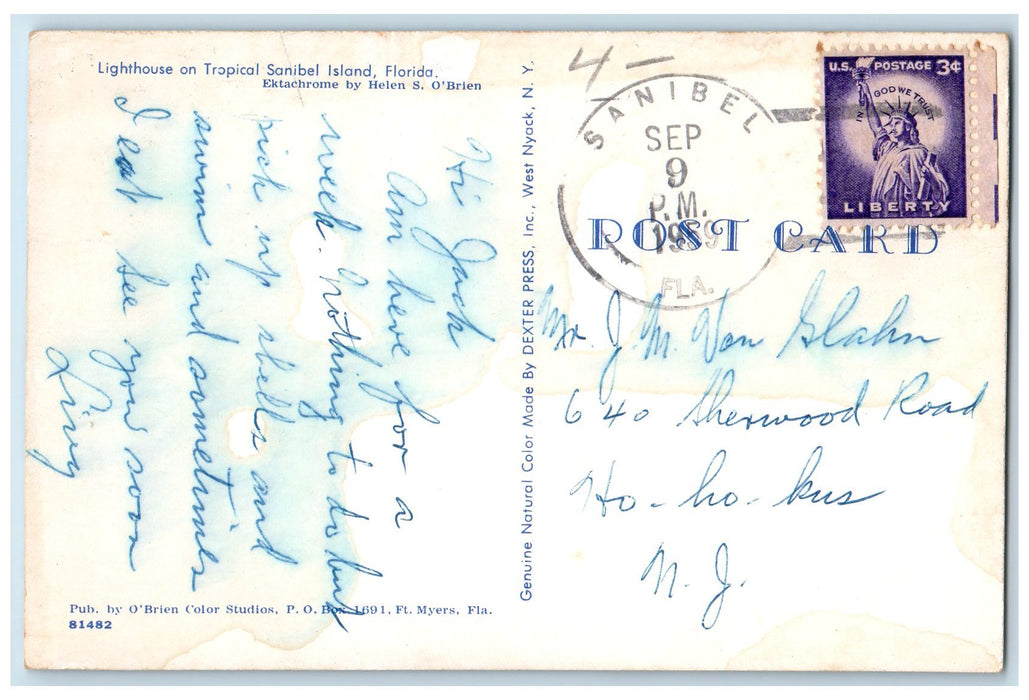 Lighthouse on Tropical Sanibel Island, Florida.
Ektachrome by Helen S. O'Brien
Hi Jack
Am here for a
week. Nothing to do but
pick up shells and
swim and sometimes
I eat. See you soon
Pub. by O'Brien Color Studios, P. O. Box 1691, Ft. Myers, Fla.
81482
Genuine Natural Color Made By DEXTER PRESS, Inc., West Nyack, N. Y.
4 —
SANIBEL
SEP
9
P.M.
1959
FLA.
U.S. POSTAGE 3¢
IN GOD WE TRUST
LIBERTY
POST CARD
Mr. J. M. Von Glahn
640 Sherwood Road
Ho-ho-kus
N. J.